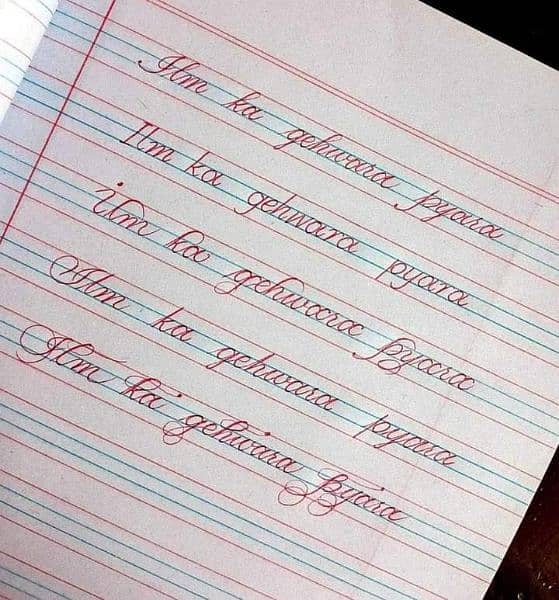 Ilm ka gehwara pyara
Ilm ka gehwara pyara
Ilm ka gehwara pyara
Ilm ka gehwara pyara
Ilm ka gehwara pyara